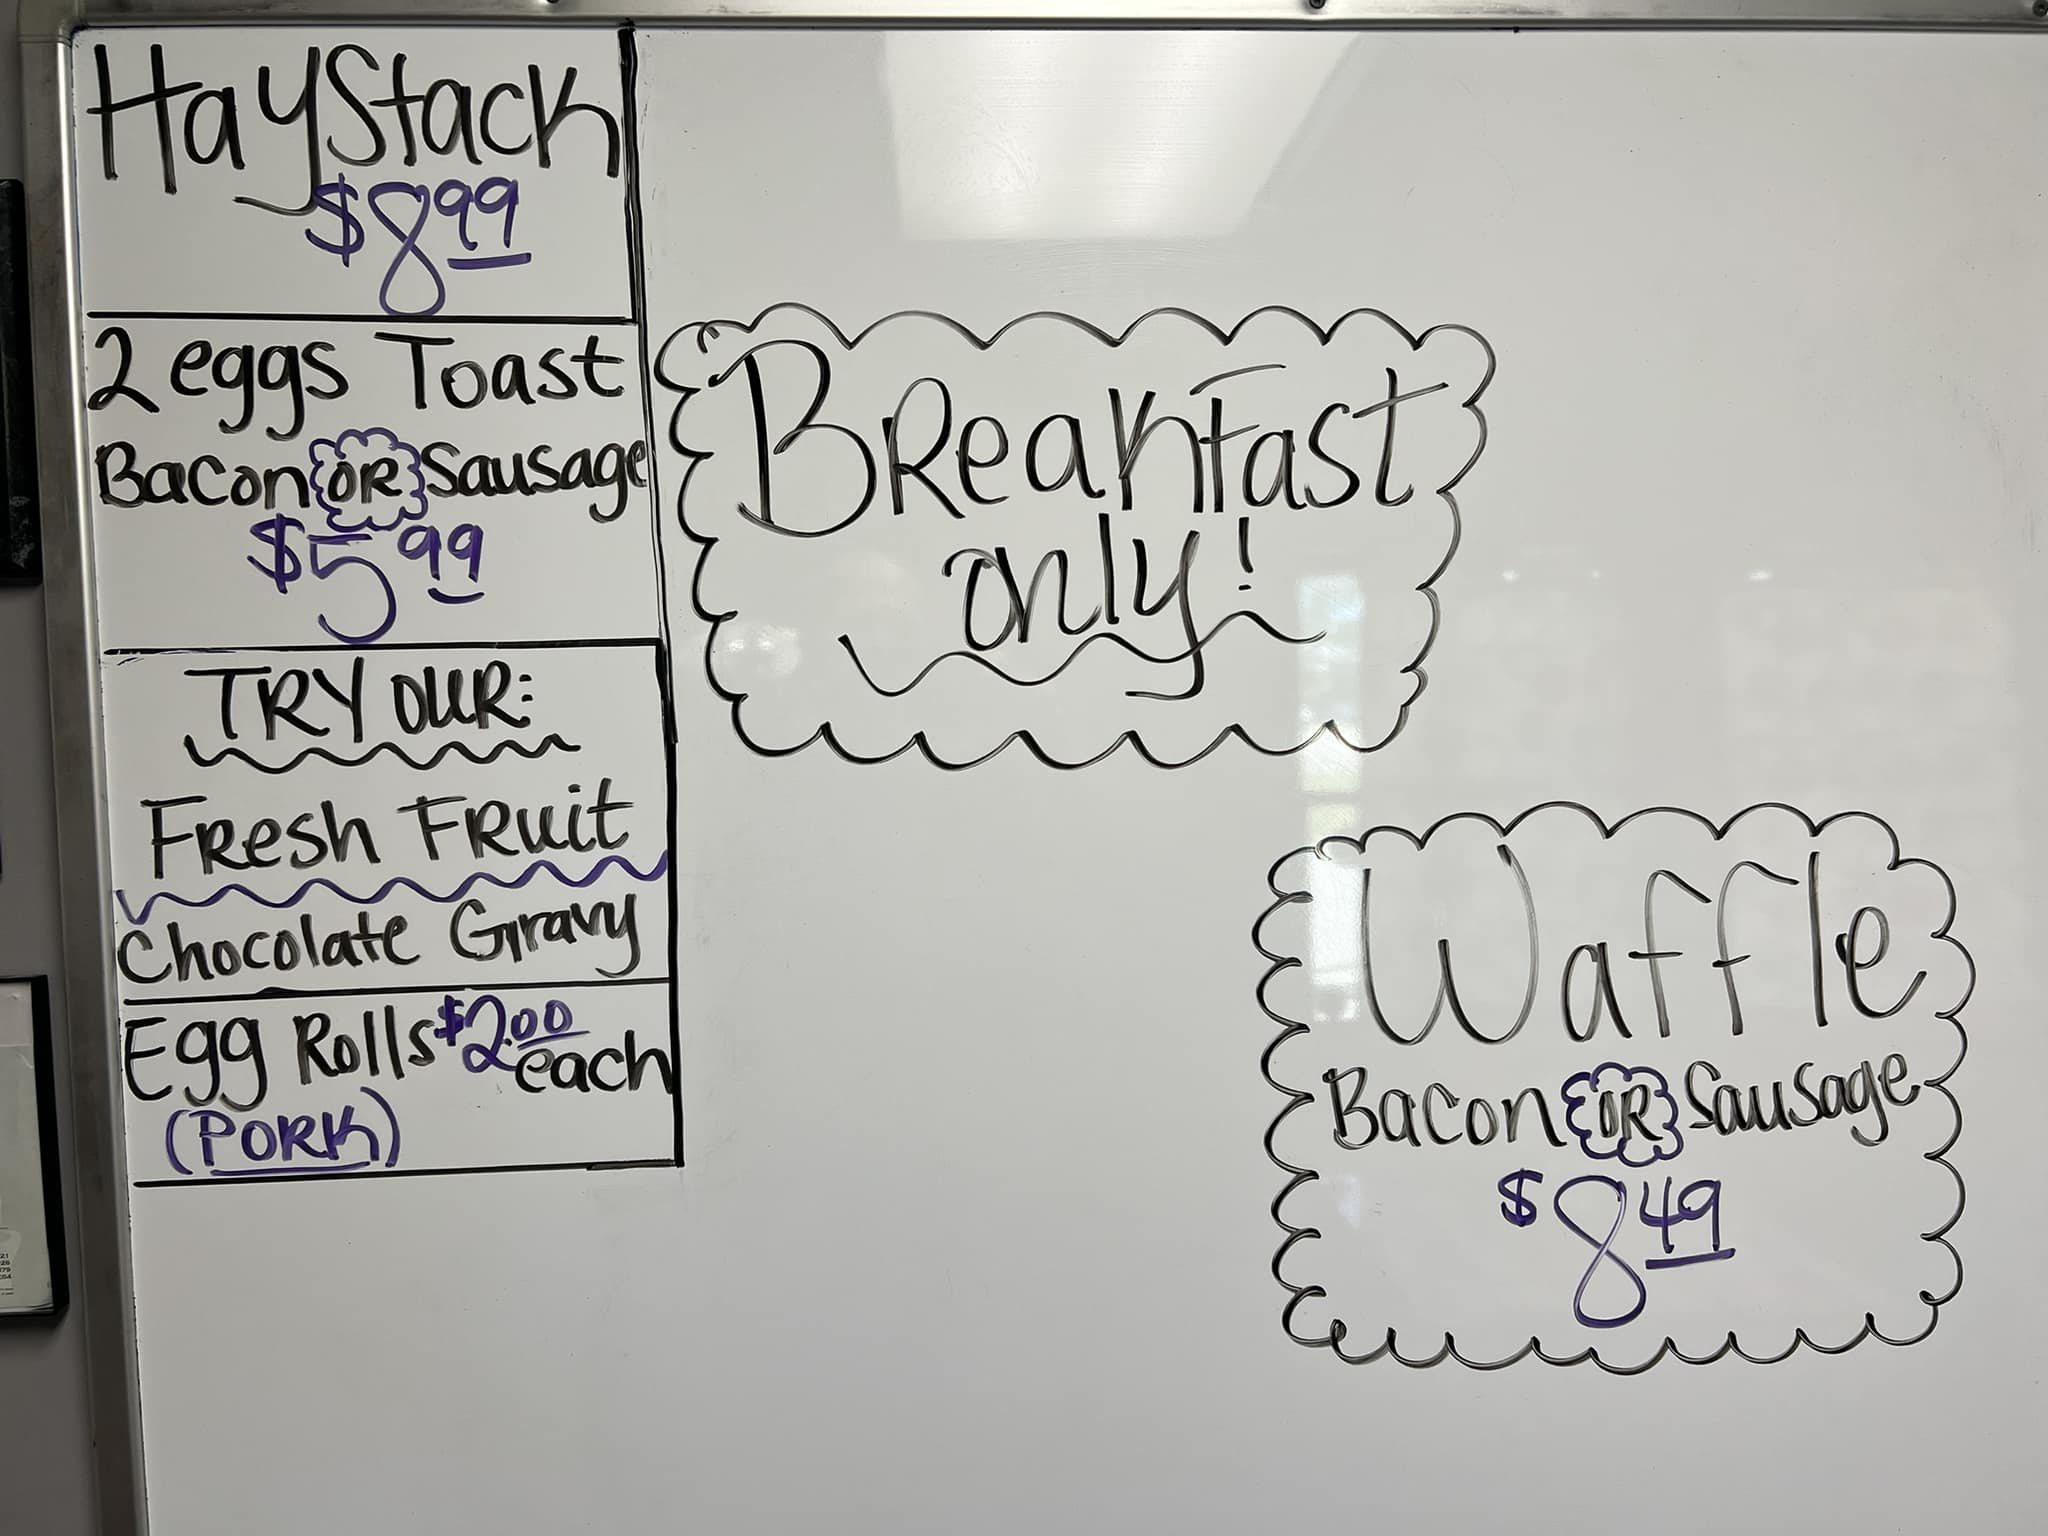 HayStack
$8.99
2 eggs Toast
Bacon OR Sausage
$5.99
TRY OUR:
Fresh Fruit
Chocolate Gravy
Egg Rolls $2.00 each
(PORK)
Breakfast
only!
Waffle
Bacon OR Sausage
$8.49